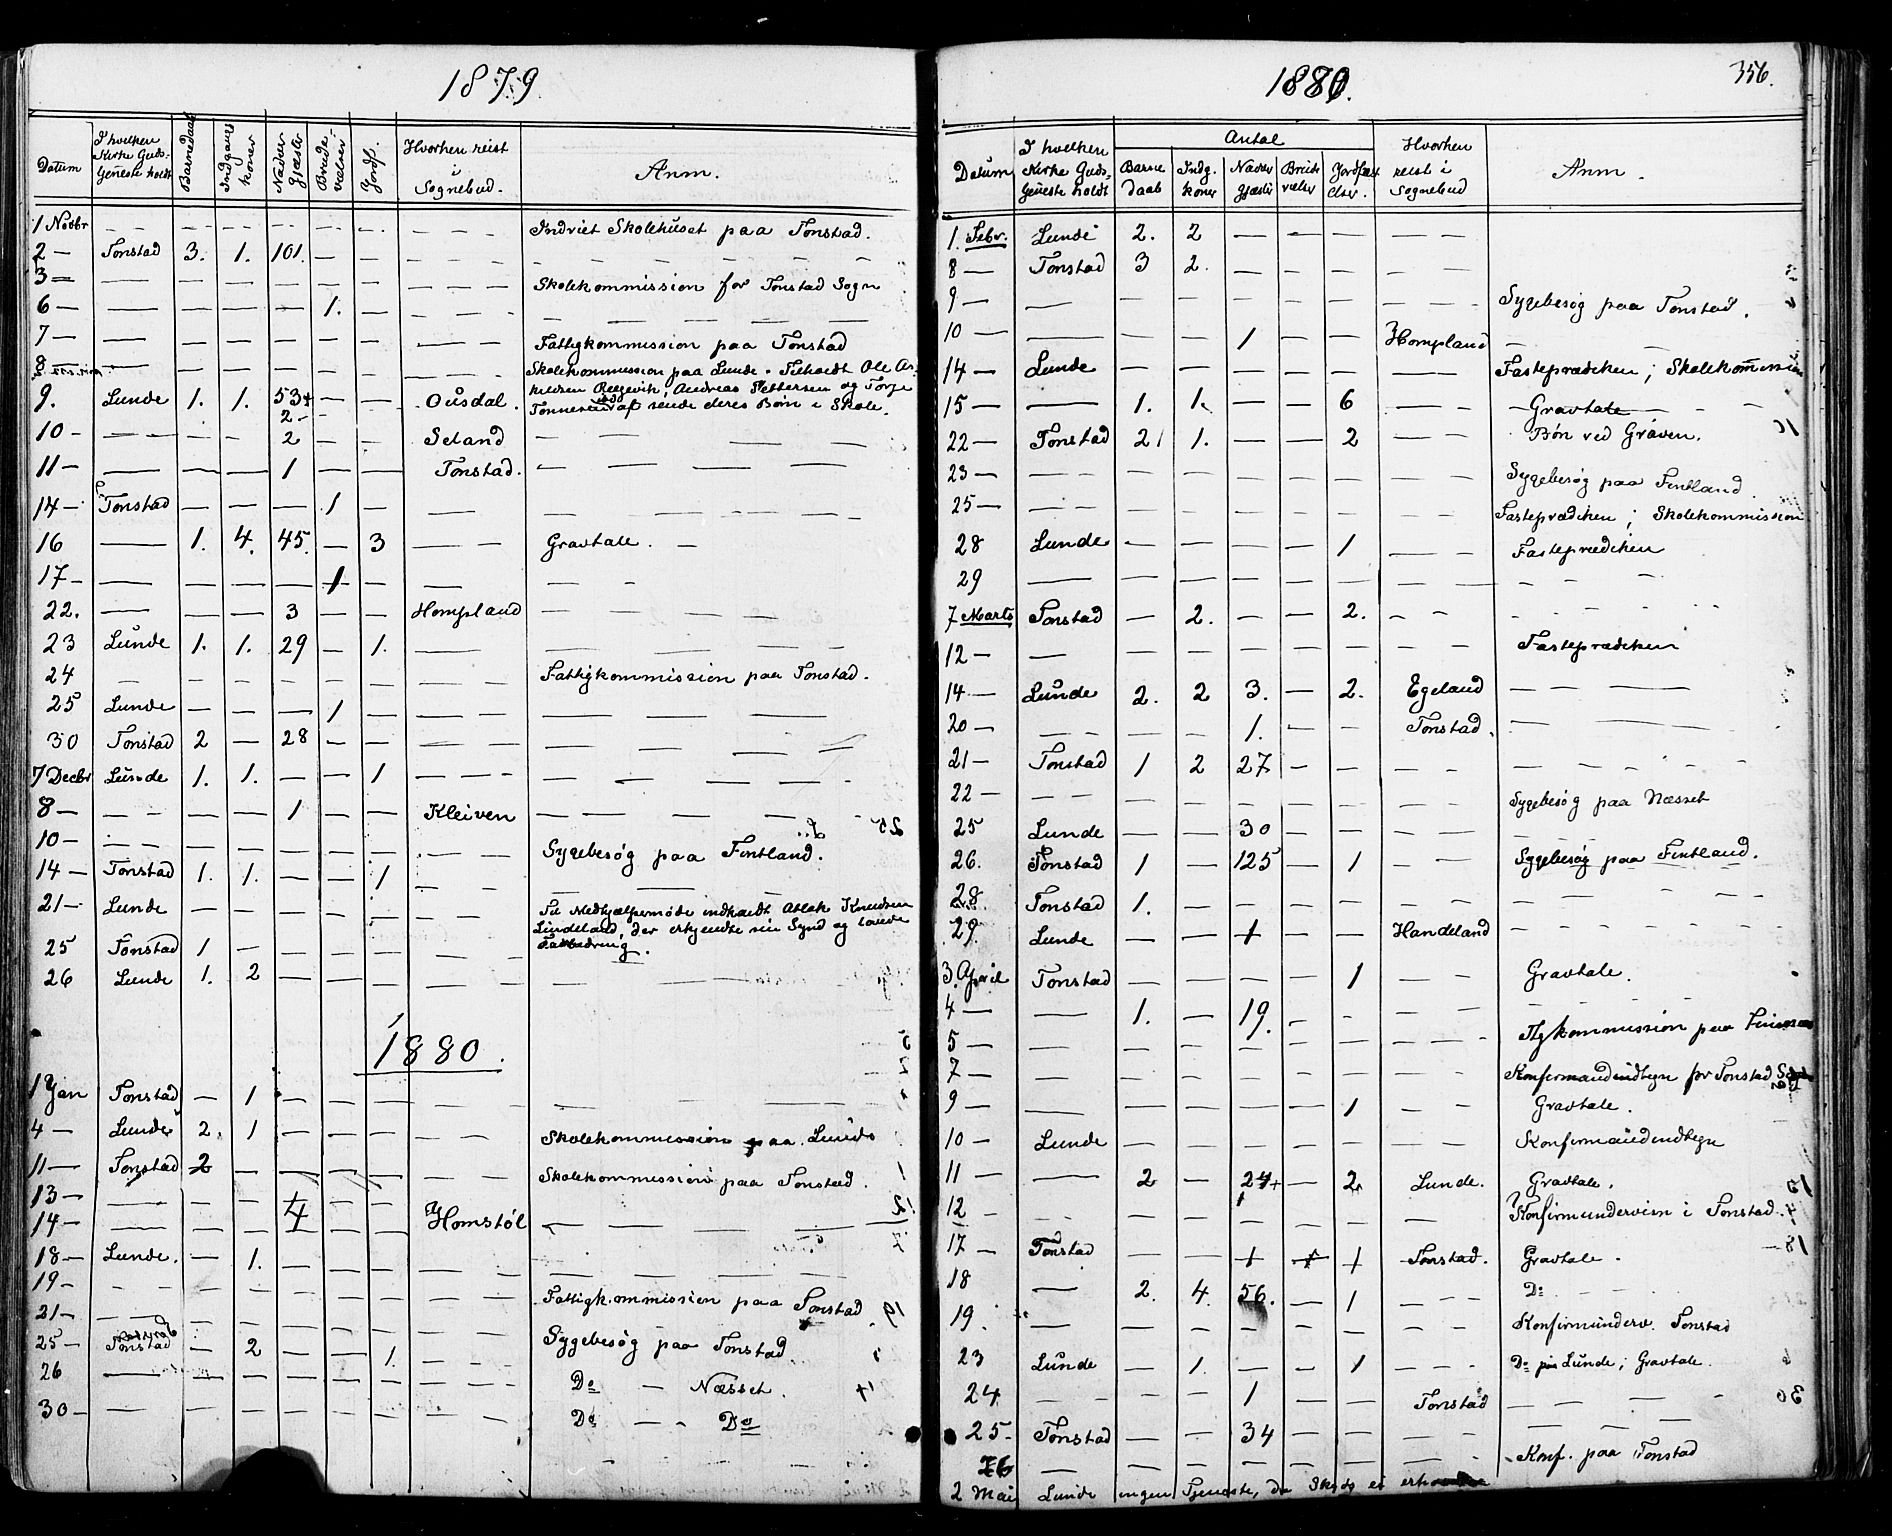 1879.
Datum | I hvilken Kirke Guds- tjeneste holdt | Barnedaab | Indgangs koner | Nadver gjæster | Brude- vielser | Jordf. | Hvorhen reist i Sognebud. | Anm.
1 Novbr — — — — — — — Indviet Skolehuset paa Tonstad.
2 — Tonstad 3. 1. 101. — — — —
3 — — — — — — — — Skolekommission for Tonstad Sogn
6 — — — — — 1. — — —
7 — — — — — — — — Fattigkommission paa Tonstad
8 — — — — — — — Skolekommission paa Lunde.
9. Lunde 1. 1. 53+ — — Ousdal.
2 —
af sende deres Børn i Skole.
10 — — — — 2 — — Seland — —
11 — — — — 1 — — Tonstad. — —
14 — Tonstad — — — 1 — — —
16 — 1. 4. 45. — 3 — — Gravtale. —
17 — — — — — 1 — — — —
22. — — — 3 — — Hompland — —
23 Lunde 1. 1. 29 — 1. — —
24 — — — — — — — Fattigkommission paa Tonstad.
25 Lunde — — — 1 — — —
30 Tonstad 2 — 28 — — — —
7 Decbr Lunde 1. 1. — — 1 — —
8 — — — — 1 — — Kleiven — —
10 — — — — — — — — Sygebesøg paa Fintland.
14 — Tonstad 1. 1. — — 1 — —
21 — Lunde — — — — — — Til Medhjælpermøde indkaldt Atlak Knudsen
Lindeland, der erkjendte sin Synd og lovede
Forbedring.
25 Tonstad 1 — — — — — —
26 Lunde 1. 2 — — — — —
1880.
1 Jan Tonstad — 1 — — — — —
4 — Lunde 2. 1 — — — — Skolekommission paa Lunde
11 — Tonstad 2 — — — — — Skolekommission paa Tonstad.
13 — — — — — — —
14 — — — — 4 — — Homstøl —
18 — Lunde. — 1. — — — — —
19 — — — — — — — — Fattigkommission paa Tonstad
21 — — — — — — — — Sygebesøg paa Tonstad
25 — Tonstad — 2 — — 1. — —
26 — — — — — — — Do — Næsset.
30 — — — — — — — — Do — Do
1880.
356.
Datum | I hvilken Kirke Guds- tjeneste holdt | Antal | Barne daab | Indg. koner | Nadver gjæster | Brude vielser | Jordfæst elser. | Hvorhen reist i Sognebud | Anm.
1. Febr. Lunde 2. 2 — — — — —
8 — Tonstad 3 2. — — — — —
9 — — — — — — — — Sygebesøg paa Tonstad.
10 — — — — 1 — — Hompland — —
14 — Lunde — — — — — — Fasteprædiken; Skolekommission
15 — — 1. 1. — — 6 — — Gravtale —
22 — Tonstad 2 1. — — 2 — — Bøn ved Graven.
23 — — — — — — — — Sygebesøg paa Fintland.
25 — — — — — — — — Fasteprædiken; Skolekommission
28 Lunde — — — — 1 — — Fasteprædiken
29 — — — — — — — —
7 Marts Tonstad — 2. — — 2. — — —
12 — — — — — — — — Fasteprædiken
14 — Lunde 2. 2 3. — 2. Egeland — —
20 — — — — 1. — — Tonstad. — —
21 — Tonstad 1 2 27 — — — — —
22 — — — — — — — — Sygebesøg paa Næsset
25 Lunde — — 30 — — — — —
26. Tonstad 1 — 125 — 1 — — Sygebesøg paa Fintland.
28. Tonstad 1. — — — — — —
29. Lunde — — 1 — — Handeland — —
3. April Tonstad — — — — 1 — — Gravtale.
4 — — 1. — 19. — — — —
5 — — — — — — — —
7 — — — — — — — — Konfirmandindtegn for Tonstad
9 — — — — — — 1 — — Gravtale.
10 — Lunde — — — — — — Konfirmandindtegn
11 — — 2 — 27+ — 2 Lunde. Gravtale.
1
12 — — — — — — — — Konfirmundervisn i Tonstad.
17 — Tonstad — — 1 1 1 Tonstad. Gravtale.
18 — 2. 4. 56. — 1 — — Do —
19. — — — — — — — Konfirmunderv. Tonstad
23 Lunde — 1. — — 1 — — Do paa Lunde; Gravtale.
24 — — — 1 — — Tonstad — —
25 — Tonstad — — 34 — — — —
26 — — — — — — — Konf. paa Tonstad
2 Mai Lunde ingen Tjeneste, da Skyds ei